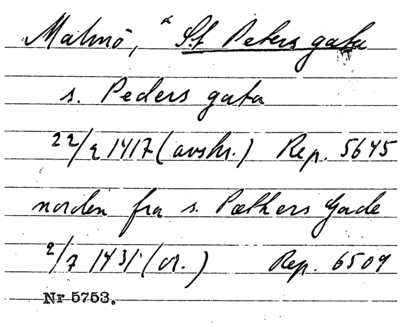 Malmö, * St Peters gata
s. Peders gata
22/2 1417 (avskr.) Rep. 5645
norden fra s. Pæthers Gade
2/7 1431 (or.) Rep. 6509
Nr 5753.